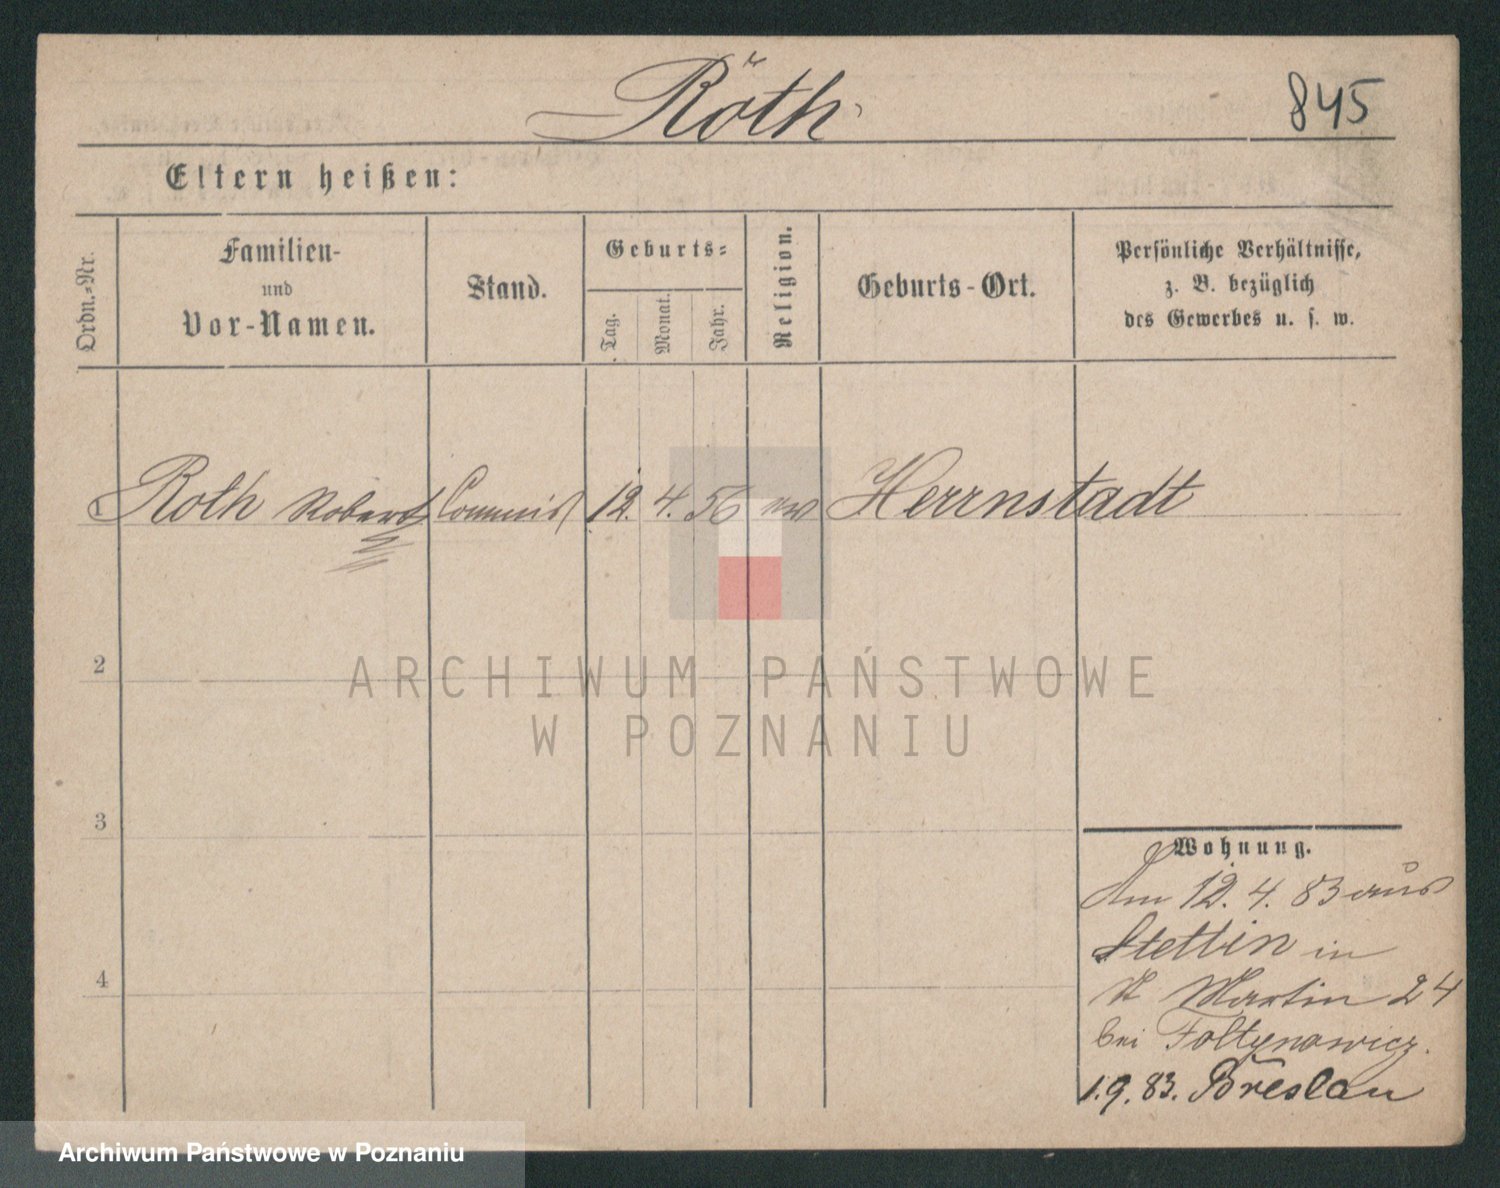 Roth
845
Eltern heißen:
Ordn.-Nr.
Familien-
und
Vor-Namen.
Stand.
Geburts-
Tag.
Monat.
Jahr.
Religion.
Geburts-Ort.
Persönliche Verhältnisse,
z. B. bezüglich
des Gewerbes u. s. w.
1 Roth Robert Commis 12. 4. 56 ev Herrnstadt
2
3
4
Wohnung.
Am 12. 4. 83 aus
Stettin in
St Martin 24
bei Foltynowicz.
1.9.83. Breslau
ARCHIWUM PAŃSTWOWE
W POZNANIU
Archiwum Państwowe w Poznaniu